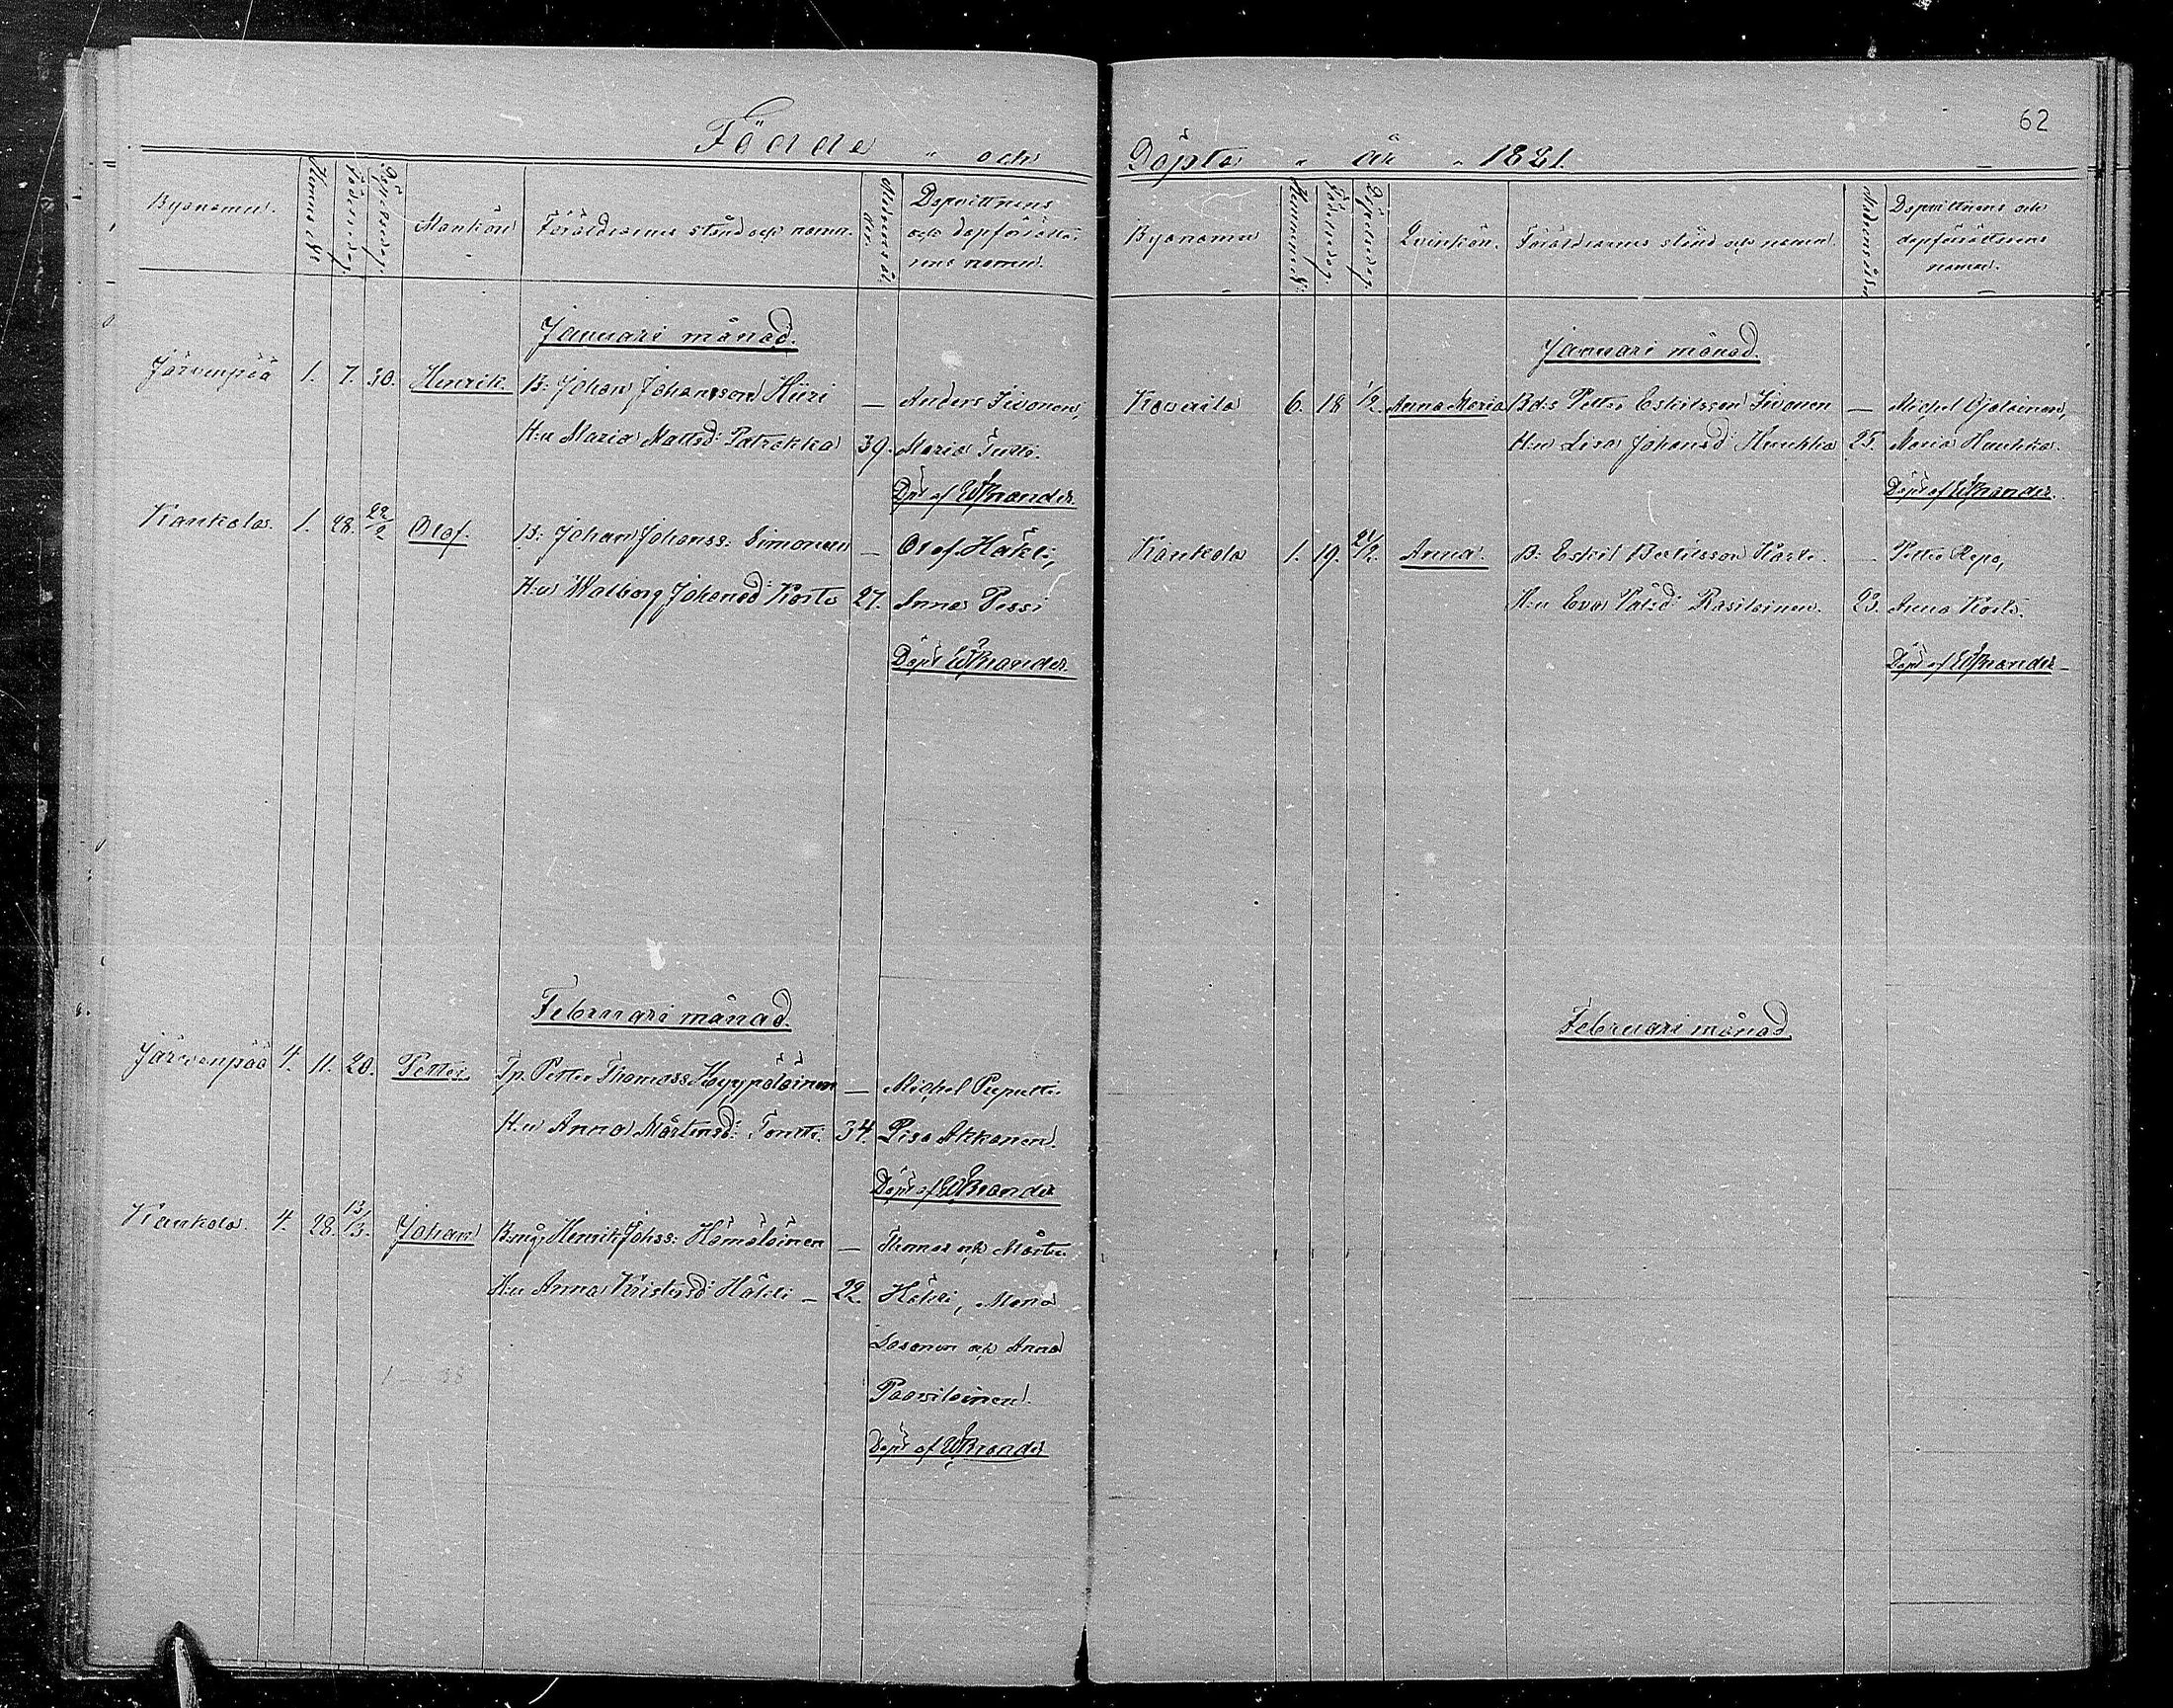 62
Födde " och Döpte " år " 1881.
Byanamn. Hemma № Födelsedag. Döpelsedag. Mankön Föräldrarnes stånd och namn. Modrens ål- der. Dopvittnens
och dopförrätta-
rens namn.
Januari månad.
Järvenpää 1. 7. 30. Henrik. B: Johan Johansson Hiiri — Anders Iivonen,
H:u Maria Mattsd: Patrakka 39. Maria Tutti.
Döpt af WBrander.
Kaukola. 1. 28. 22/2 Olof. B: Johan Johanss: Simonen — Olof Häkli,
H:u Walborg Johansd: Korte 27. Anna Pessi
Döpt WBrander.
Februari månad.
Järvenpää 4. 11. 20. Petter. Tp. Petter Thomass Koyypäläinen — Michel Puputti
H:u Anna Mårtensd: Tontti. 34. Lisa Akkanen.
Döpt af WBrander
Kaukola. 4. 28. 13/3. Johan B:måg Henrik Johss: Hämäläinen — Thomas och Mårten
H:u Anna Kristersd: Häkli — 22. Häkli, Maria
Sasonen och Anna
Paavilainen.
Döpt af WBrander
Byanamn Hemmans№: Födelsedag. Döpelsedag. Qvinkön. Föräldrarnes stånd och namn. Modrens ålder Dopvittnens och
dopförrättarens
namn.
Januari månad.
Kaverila 6. 18 1/2. Anna Maria Bds: Petter Eskilsson Iivonen — Michel Ojalainen,
H:u Lisa Johansd: Huuhka 25. Maria Huuhka.
Döpt af WBrander.
Kaukola 1. 19. 21/2. Anna. B: Eskil Bertilsson Korte. — Petter Repo,
H:u Eva Pålsd: Rasilainen. 23. Anna Korte.
Döpt af WBrander
Februari månad.